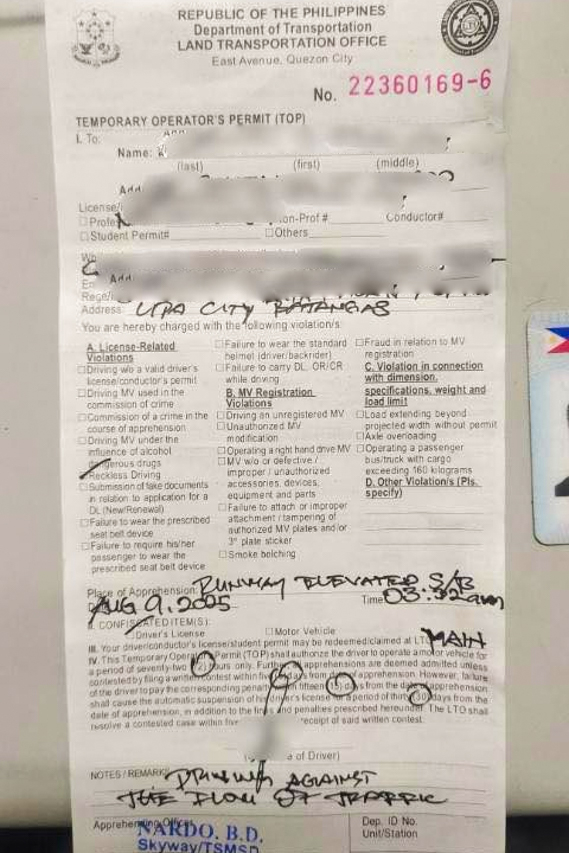 REPUBLIC OF THE PHILIPPINES
Department of Transportation
LAND TRANSPORTATION OFFICE
East Avenue, Quezon City
No. 22360169-6
TEMPORARY OPERATOR'S PERMIT (TOP)
I. To:
Name:
(last) (first) (middle)
Add
License/
□Profe on-Prof # Conductor#
□Student Permit# □Others
Add
Rege/
Address: LIPA CITY BATANGAS
You are hereby charged with the following violation/s:
A. License-Related
Violations
□Driving w/o a valid driver's
license/conductor's permit
□Driving MV used in the
commission of crime
□Commission of a crime in the
course of apprehension
□Driving MV under the
influence of alcohol
gerous drugs
Reckless Driving
□Submission of fake documents
in relation to application for a
DL (New/Renewal)
□Failure to wear the prescribed
seat belt device
□Failure to require his/her
passenger to wear the
prescribed seat belt device
□Failure to wear the standard
helmet (driver/backrider)
□Failure to carry DL, OR/CR
while driving
B. MV Registration
Violations
□Driving an unregistered MV
□Unauthorized MV
modification
□Operating a right hand drive MV
□MV w/o or defective /
improper / unauthorized
accessories, devices,
equipment and parts
□Failure to attach or improper
attachment / tampering of
authorized MV plates and/or
3rd plate sticker
□Smoke belching
□Fraud in relation to MV
registration
C. Violation in connection
with dimension,
specifications, weight and
load limit
□Load extending beyond
projected width without permit
□Axle overloading
□Operating a passenger
bus/truck with cargo
exceeding 160 kilograms
D. Other Violation/s (Pls.
specify)
Place of Apprehension: RUNWAY ELEVATED S/B
AUG 9, 2005 Time 03:32am
II. CONFISCATED ITEM(S):
Driver's License □Motor Vehicle
III. Your driver/conductor's license/student permit may be redeemed/claimed at LTO MAIN
IV. This Temporary Operator's Permit (TOP) shall authorize the driver to operate a motor vehicle for
a period of seventy-two (72) hours only. Further, apprehensions are deemed admitted unless
contested by filing a written contest within five (5) days from date of apprehension. However, failure
of the driver to pay the corresponding penalty within fifteen (15) days from date of apprehension
shall cause the automatic suspension of his driver's license for a period of thirty (30) days from the
date of apprehension, in addition to the fines and penalties prescribed hereunder. The LTO shall
resolve a contested case within five receipt of said written contest.
e of Driver)
NOTES / REMARKS DRIVING AGAINST
THE FLOW OF TRAFFIC
Apprehending Officer Dep. ID No.
NARDO, B.D. Unit/Station
Skyway/TSMSD